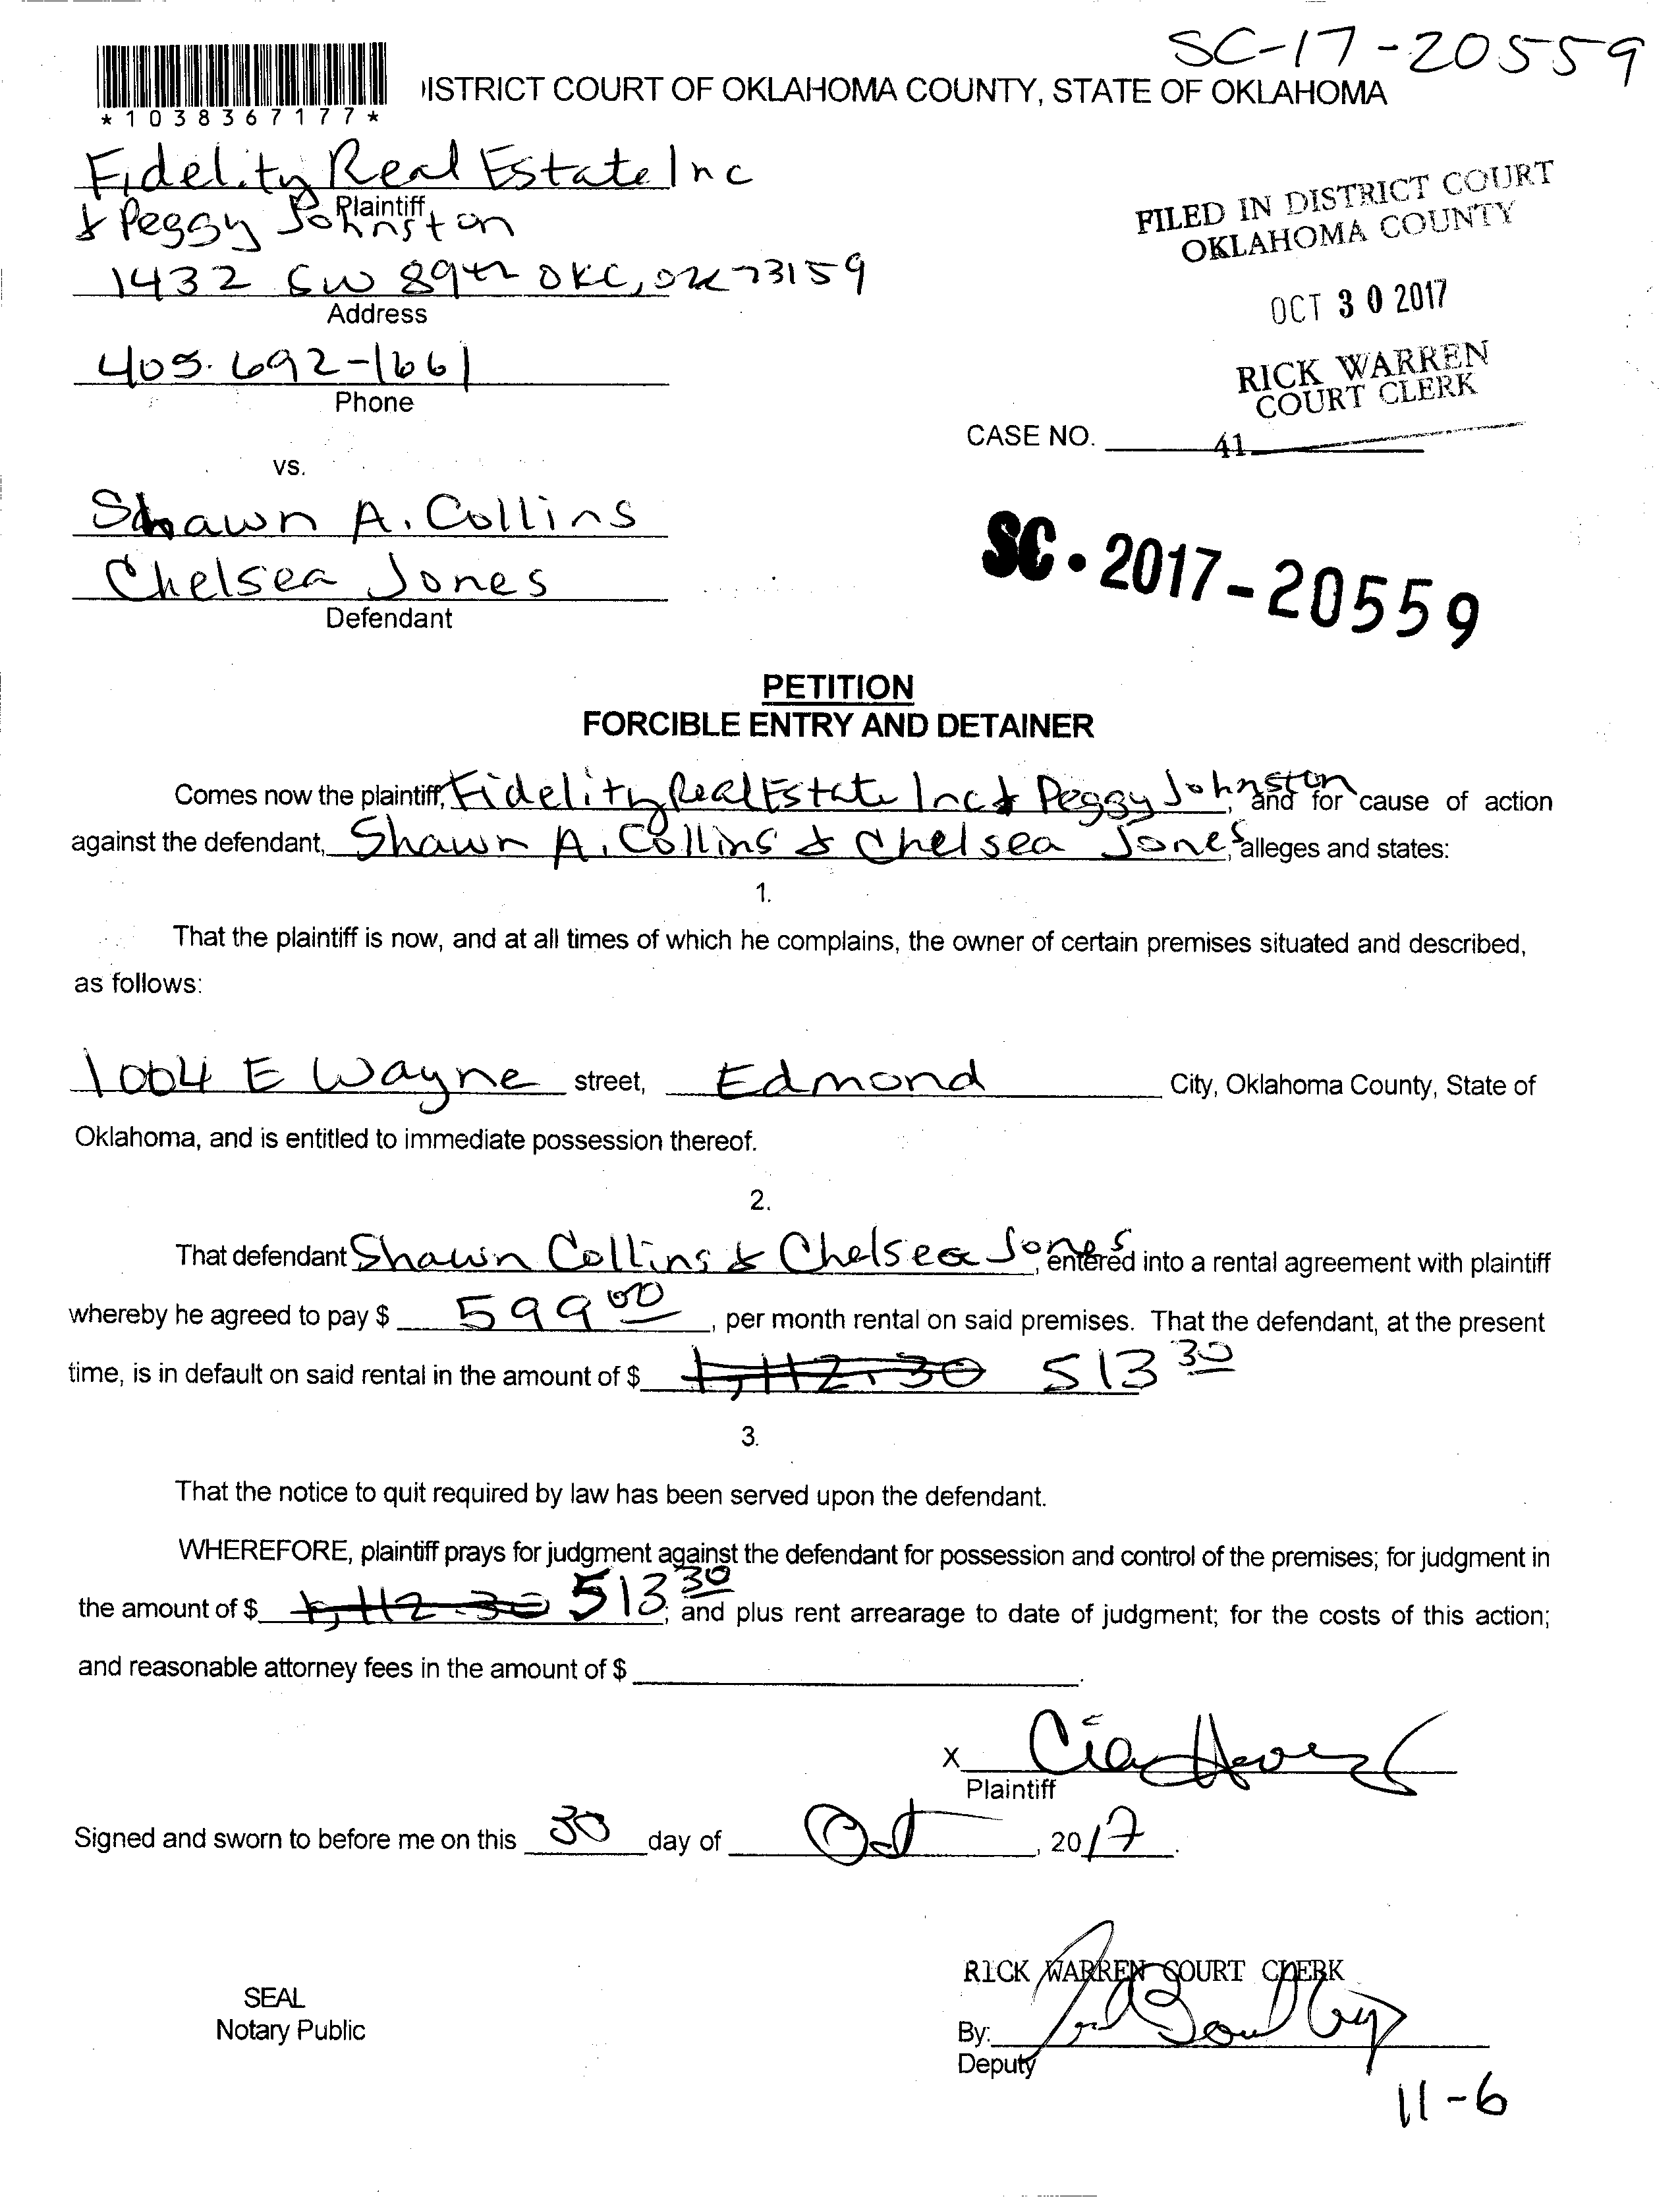 SC-17-20559
ISTRICT COURT OF OKLAHOMA COUNTY, STATE OF OKLAHOMA
*1038367177*
Fidelity Real Estate Inc
Plaintiff
& Peggy Johnston
1432 SW 89th OKC, OK 73159
Address
405-692-1661
Phone
FILED IN DISTRICT COURT
OKLAHOMA COUNTY
OCT 30 2017
RICK WARREN
COURT CLERK
CASE NO. 41
vs.
Shawn A. Collins
Chelsea Jones
Defendant
SC - 2017-20559
PETITION
FORCIBLE ENTRY AND DETAINER
Comes now the plaintiff, Fidelity Real Estate Inc & Peggy Johnston, and for cause of action
against the defendant, Shawn A. Collins & Chelsea Jones, alleges and states:
1.
That the plaintiff is now, and at all times of which he complains, the owner of certain premises situated and described,
as follows:
1004 E Wayne street, Edmond City, Oklahoma County, State of
Oklahoma, and is entitled to immediate possession thereof.
2.
That defendant Shawn Collins & Chelsea Jones, entered into a rental agreement with plaintiff
whereby he agreed to pay $ 599 00, per month rental on said premises. That the defendant, at the present
time, is in default on said rental in the amount of $ 1,112.30 513 30
3.
That the notice to quit required by law has been served upon the defendant.
WHEREFORE, plaintiff prays for judgment against the defendant for possession and control of the premises; for judgment in
the amount of $ 1,112.30 513 30; and plus rent arrearage to date of judgment; for the costs of this action;
and reasonable attorney fees in the amount of $
X
Plaintiff
Signed and sworn to before me on this 30 day of Oct, 2017.
RICK WARREN COURT CLERK
SEAL
Notary Public
By:
Deputy
11-6